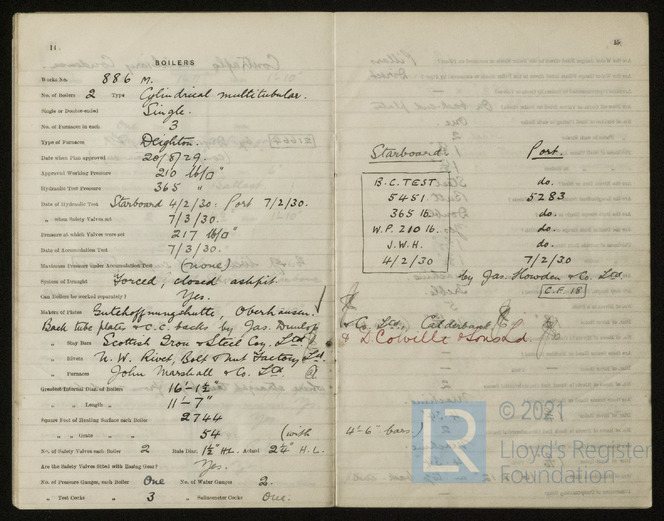 14
BOILERS
Works No. 886 M.
No. of Boilers 2 Type Cylindrical multitubular.
Single or Double-ended Single.
No. of Furnaces in each 3
Type of Furnaces Deighton.
Date when Plan approved 20/8/29.
Approved Working Pressure 210 lb/□"
Hydraulic Test Pressure 365 "
Date of Hydraulic Test Starboard 4/2/30: Port 7/2/30.
" when Safety Valves set 7/3/30.
Pressure at which Valves were set 217 lb/□"
Date of Accumulation Test 7/3/30.
Maximum Pressure under Accumulation Test (none)
System of Draught Forced, closed ashpit.
Can Boilers be worked separately? Yes.
Makers of Plates Gutehoffnungshutte, Oberhausen.
Back tube plates & C.C. backs by Jas. Dunlop
" Stay Bars Scottish Iron & Steel Coy. Ltd
" Rivets N. W. Rivet, Bolt & Nut Factory Ltd.
" Furnaces John Marshall & Co. Ltd
Greatest Internal Diam. of Boilers 16'-1½"
" " Length " 11'-7"
Square Feet of Heating Surface each Boiler 2744
" " Grate " " 54 (with
No. of Safety Valves each Boiler 2 Rule Diam. 1½" H.L. Actual 2¼" H.L.
Are the Safety Valves fitted with Easing Gear? Yes.
No. of Pressure Gauges, each Boiler One No. of Water Gauges 2.
" Test Cocks " 3 " Salinometer Cocks One.
15
Starboard. Port.
B.C. TEST do.
5451 5283
365 lb. do.
W.P. 210 lb. do.
J.W.H. do.
4/2/30 7/2/30
by Jas. Howden & Co. Ltd.
C.F. 18
& Co. Ltd. Calderbank
& D. Colville & Sons Ld
4'-6" bars.)
© 2021
LR
Lloyd's Register
Foundation